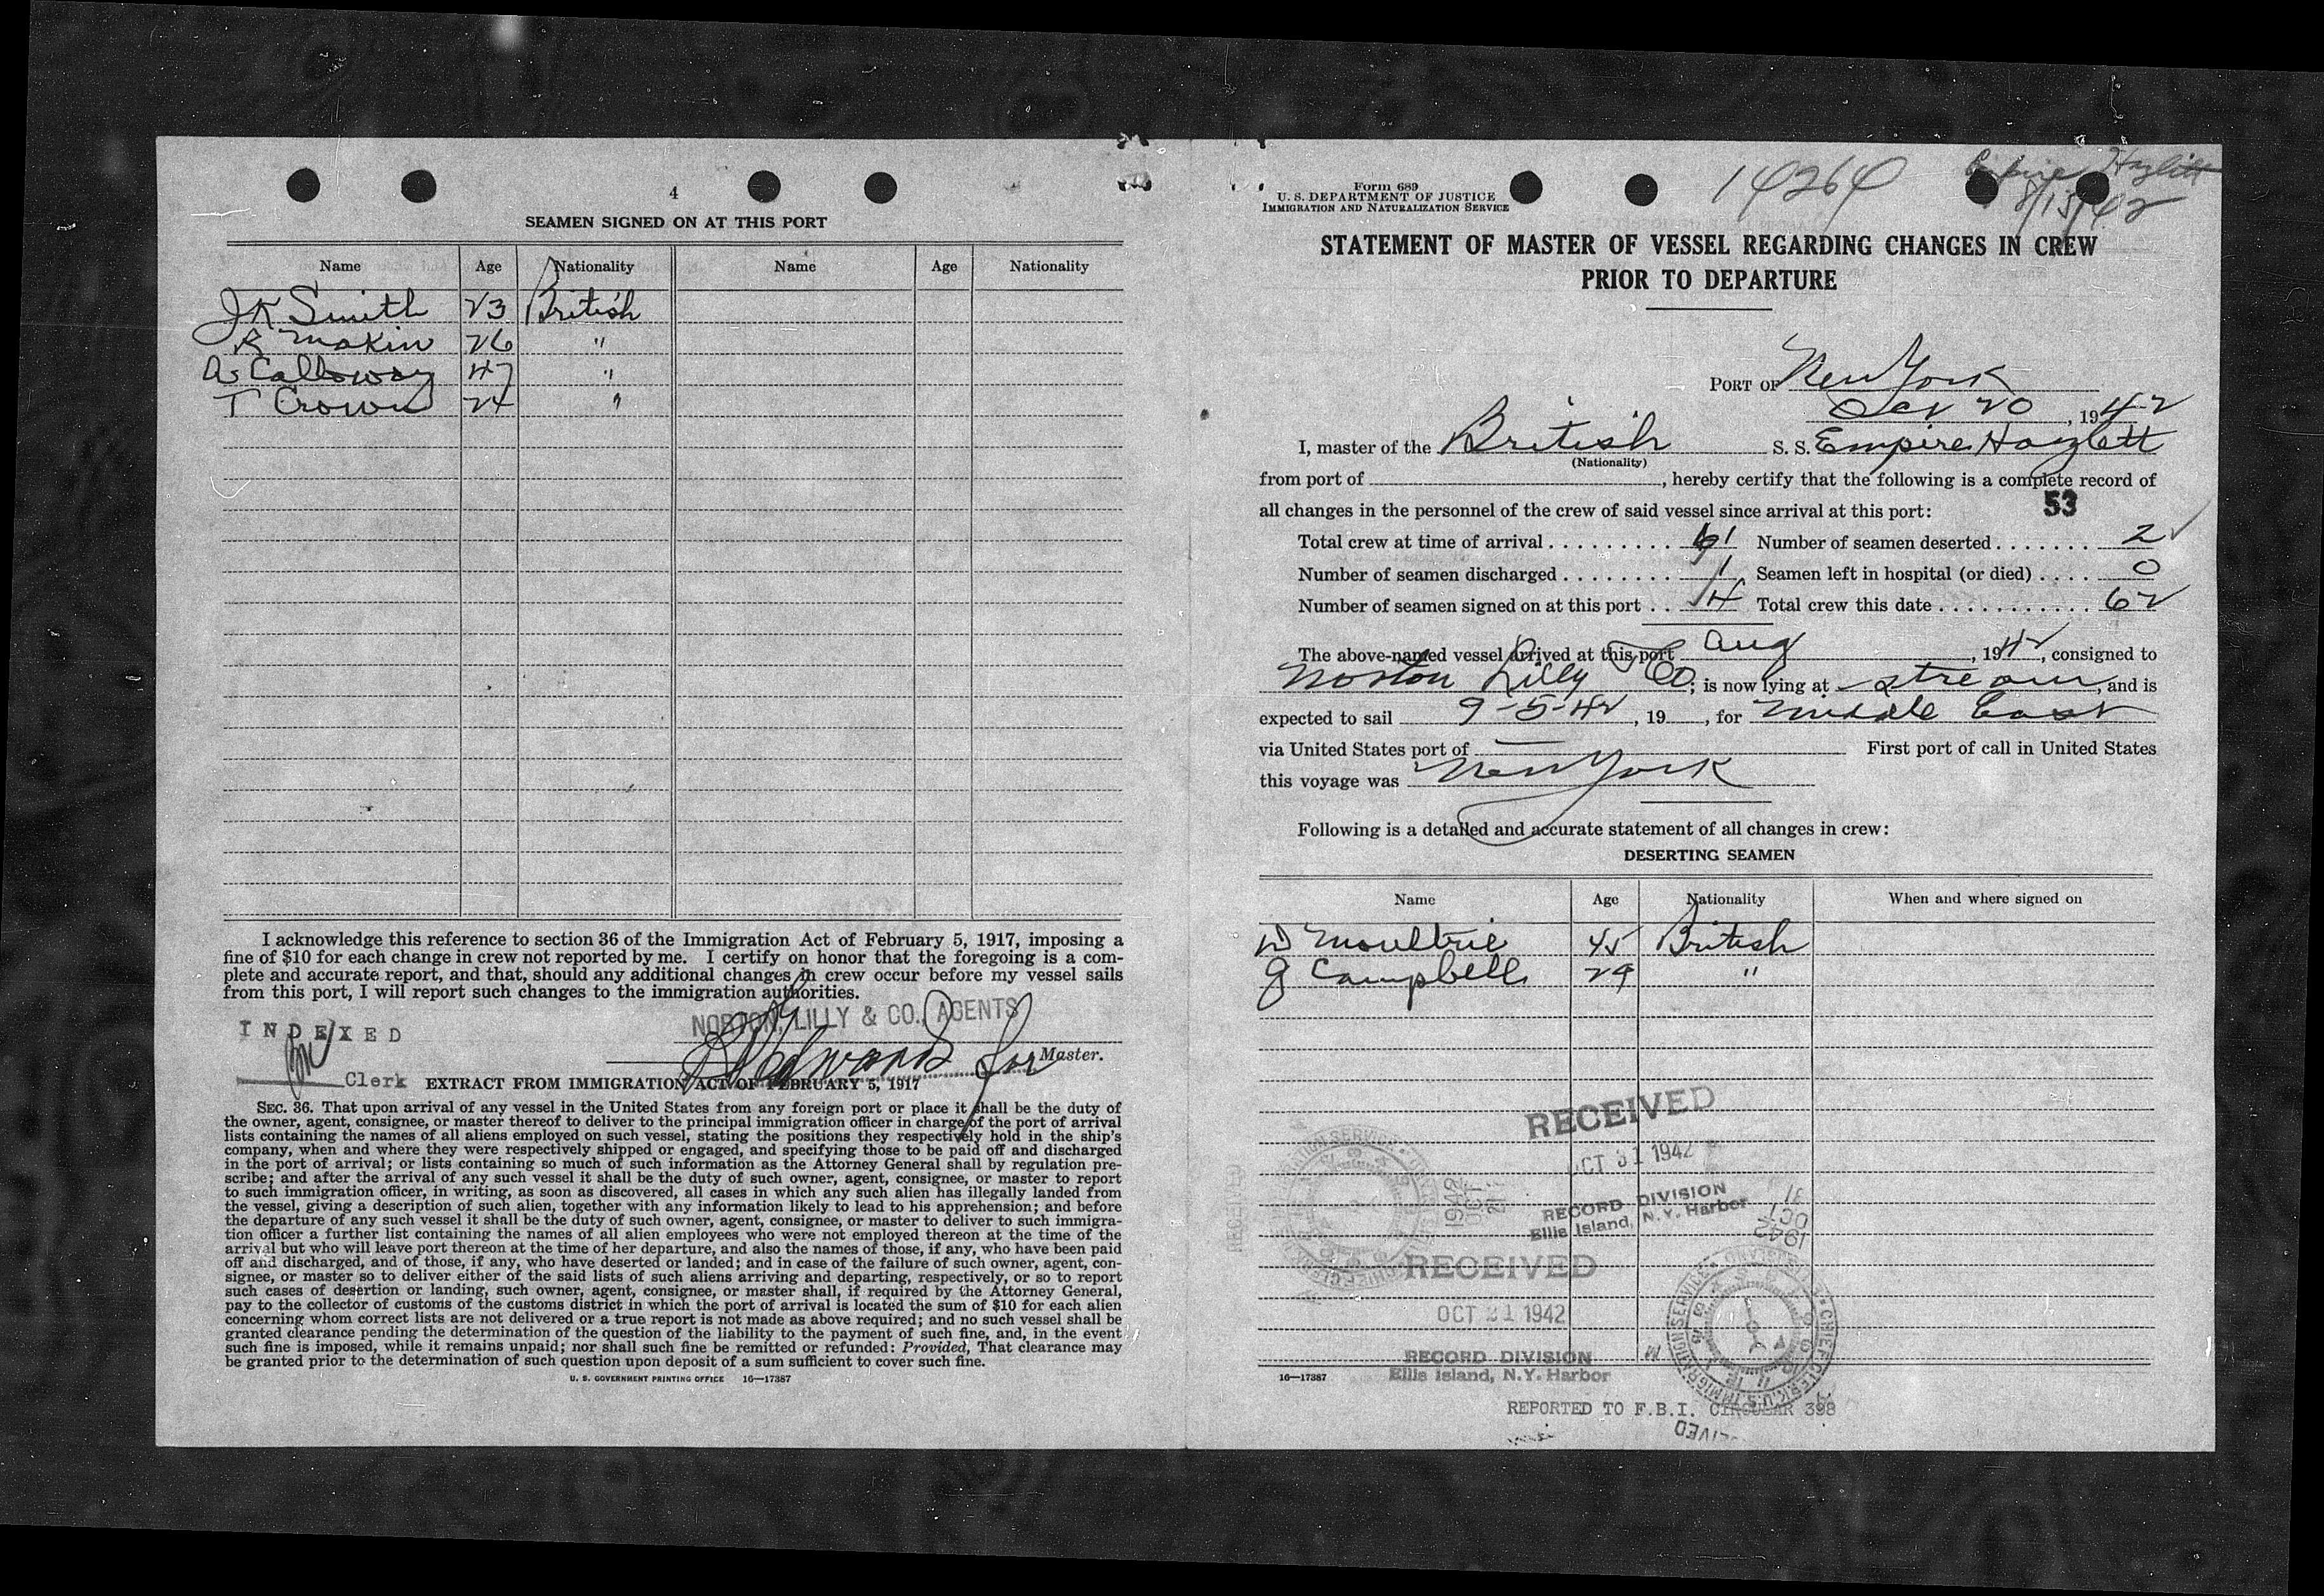 4
SEAMEN SIGNED ON AT THIS PORT
Name Age Nationality Name Age Nationality
JK Smith 23 British
R Makin 26 "
A Calloway 47 "
T Crown 24 "
I acknowledge this reference to section 36 of the Immigration Act of February 5, 1917, imposing a
fine of $10 for each change in crew not reported by me. I certify on honor that the foregoing is a com-
plete and accurate report, and that, should any additional changes in crew occur before my vessel sails
from this port, I will report such changes to the immigration authorities.
NORTON, LILLY & CO., AGENTS
INDEXED
Edwards for Master.
Clerk
EXTRACT FROM IMMIGRATION ACT OF FEBRUARY 5, 1917
SEC. 36. That upon arrival of any vessel in the United States from any foreign port or place it shall be the duty of
the owner, agent, consignee, or master thereof to deliver to the principal immigration officer in charge of the port of arrival
lists containing the names of all aliens employed on such vessel, stating the positions they respectively hold in the ship's
company, when and where they were respectively shipped or engaged, and specifying those to be paid off and discharged
in the port of arrival; or lists containing so much of such information as the Attorney General shall by regulation pre-
scribe; and after the arrival of any such vessel it shall be the duty of such owner, agent, consignee, or master to report
to such immigration officer, in writing, as soon as discovered, all cases in which any such alien has illegally landed from
the vessel, giving a description of such alien, together with any information likely to lead to his apprehension; and before
the departure of any such vessel it shall be the duty of such owner, agent, consignee, or master to deliver to such immigra-
tion officer a further list containing the names of all alien employees who were not employed thereon at the time of the
arrival but who will leave port thereon at the time of her departure, and also the names of those, if any, who have been paid
off and discharged, and of those, if any, who have deserted or landed; and in case of the failure of such owner, agent, con-
signee, or master so to deliver either of the said lists of such aliens arriving and departing, respectively, or so to report
such cases of desertion or landing, such owner, agent, consignee, or master shall, if required by the Attorney General,
pay to the collector of customs of the customs district in which the port of arrival is located the sum of $10 for each alien
concerning whom correct lists are not delivered or a true report is not made as above required; and no such vessel shall be
granted clearance pending the determination of the question of the liability to the payment of such fine, and, in the event
such fine is imposed, while it remains unpaid; nor shall such fine be remitted or refunded: Provided, That clearance may
be granted prior to the determination of such question upon deposit of a sum sufficient to cover such fine.
U. S. GOVERNMENT PRINTING OFFICE 16—17387
Form 689
U. S. DEPARTMENT OF JUSTICE
IMMIGRATION AND NATURALIZATION SERVICE
14264
Empire Hazlitt
8/15/42
STATEMENT OF MASTER OF VESSEL REGARDING CHANGES IN CREW
PRIOR TO DEPARTURE
PORT OF New York
20, 1942
I, master of the British S. S. Empire Hazlett
(Nationality)
from port of , hereby certify that the following is a complete record of
all changes in the personnel of the crew of said vessel since arrival at this port:
53
Total crew at time of arrival 61 Number of seamen deserted 2
Number of seamen discharged 1 Seamen left in hospital (or died) 0
Number of seamen signed on at this port 4 Total crew this date 62
The above-named vessel arrived at this port Aug , 1942, consigned to
Norton Lilly Co; is now lying at stream, and is
expected to sail 9-5-42, 19 , for Middle East
via United States port of — First port of call in United States
this voyage was New York
Following is a detailed and accurate statement of all changes in crew:
DESERTING SEAMEN
Name Age Nationality When and where signed on
D Moultrie 45 British
G Campbell 29 "
RECEIVED
OCT 31 1942
RECORD DIVISION
Ellis Island, N.Y. Harbor
1942
OCT
21
31
OCT
1942
RECEIVED
OCT 21 1942
RECORD DIVISION
Ellis Island, N.Y. Harbor
16—17387
REPORTED TO F.B.I. CIRCULAR 398